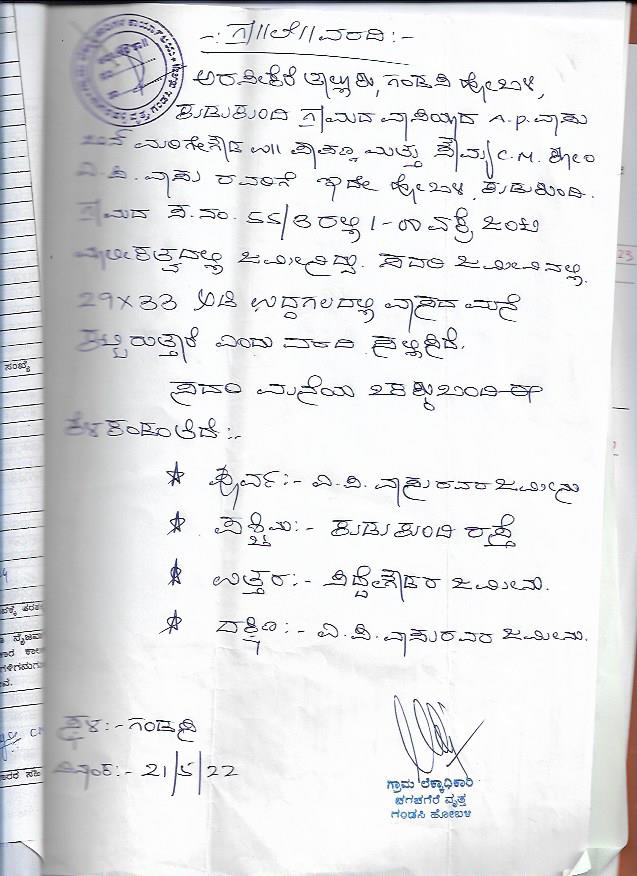 -: ಗ್ರಾ||ಲೆ|| ವರದಿ :-
ಅರಸೀಕೆರೆ ತಾಲ್ಲೂಕು, ಗಂಡಸಿ ಹೋಬಳಿ,
ಕುಡುಕುಂದಿ ಗ್ರಾಮದ ವಾಸಿಯಾದ A.P. ವಾಸು
ಮರಿಗೌಡ ಮತ್ತು ಸೌಮ್ಯ C.M. ಕೋಂ
ಎ.ಪಿ. ವಾಸು ರವರಿಗೆ ಇದೇ ಹೋಬಳಿ, ಕುಡುಕುಂದಿ.
ಗ್ರಾಮದ ಸ.ನಂ. 55/3 ರಲ್ಲಿ 1-00 ಎಕ್ರೆ ಜಂಟಿ
ಮಾಲೀಕತ್ವದಲ್ಲಿ ಜಮೀನಿದ್ದು. ಸದರಿ ಜಮೀನಿನಲ್ಲಿ.
29X33 ಅಡಿ ಉದ್ದಗಲದಲ್ಲಿ ವಾಸದ ಮನೆ
ಕಟ್ಟಿರುತ್ತಾರೆ ಎಂದು ವರದಿ ಸಲ್ಲಿಸಿದೆ.
ಸದರಿ ಮನೆಯ ಚಕ್ಕುಬಂದಿ ಈ
ಕೆಳಕಂಡಂತಿದೆ :-
★ ಪೂರ್ವ :- ಎ.ಪಿ. ವಾಸುರವರ ಜಮೀನು
★ ಪಶ್ಚಿಮ :- ಕುಡುಕುಂದಿ ರಸ್ತೆ
★ ಉತ್ತರ :- ಸಿದ್ದೇಗೌಡರ ಜಮೀನು.
★ ದಕ್ಷಿಣ :- ಎ.ಪಿ. ವಾಸುರವರ ಜಮೀನು.
ಸ್ಥಳ :- ಗಂಡಸಿ
ದಿನಾಂಕ :- 21/5/22
ಗ್ರಾಮ ಲೆಕ್ಕಾಧಿಕಾರಿ
ಚಗಚಗೆರೆ ವೃತ್ತ
ಗಂಡಸಿ ಹೋಬಳಿ
ಸಂಖ್ಯೆ
23